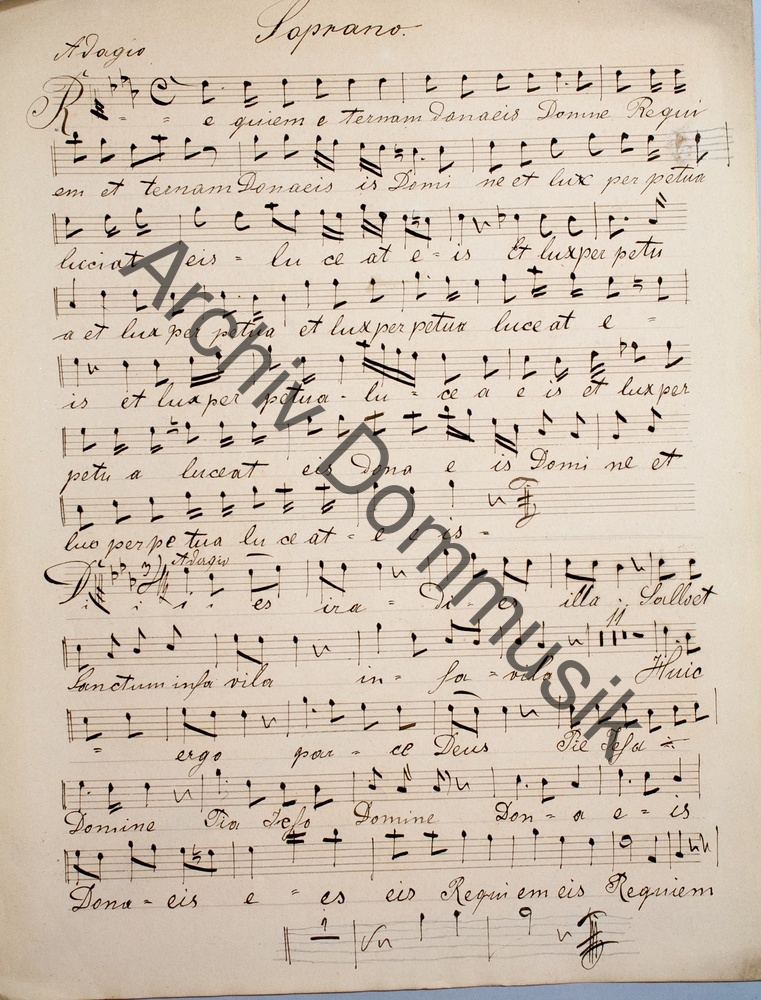 Soprano.
Adagio
R - - e quiem e ternam donaeis Domine Requi
em et ternam Donaeis is Domi ne et lux per petua
lucciat eis - lu ce at e - is Et luxper petu
a et lux per petua et lux per petua luce at e -
is et lux per petua - lu - ce a e is et lux per
petu a luceat eis dona e is Domi ne et
lux per pe tua lu ce at - e e is -
Adagio
D i i i . es ira - Di - es illa : Sallset
11
Sanctum infa vila in - fa - vila Huic
- ergo par - ce Deus Pie Jesu
Domine Pia Jesso Domine Don - a e - is
Dona - eis e - es eis Requi em eis Requiem
1
Archiv Dommusik